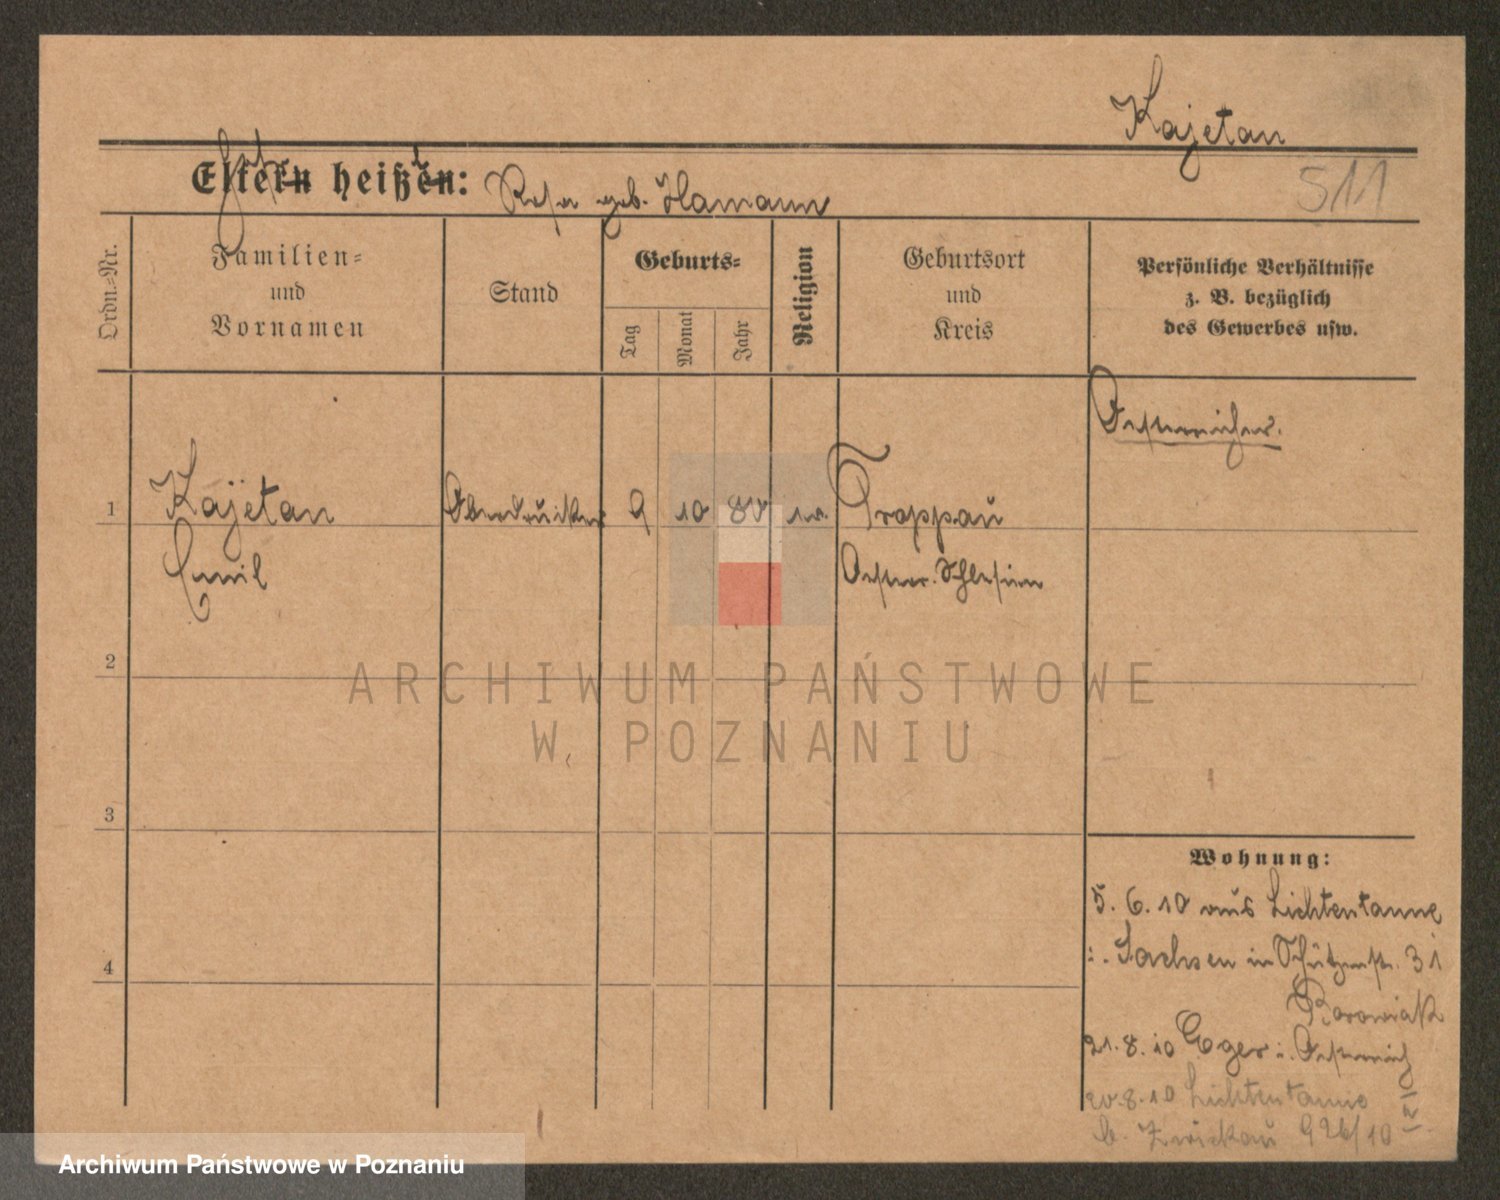 Kajetan
511
Eltern heißen: Rosa geb. Hamann
Ordn.-Nr.
Familien-
und
Vornamen
Stand
Geburts-
Tag
Monat
Jahr
Religion
Geburtsort
und
Kreis
Persönliche Verhältnisse
z. B. bezüglich
des Gewerbes usw.
Oesterreicher.
1
Kajetan
Oberdrucker
9
10
80
Troppau
Emil
Oesterr. Schlesien
2
3
4
Wohnung:
5. 6. 10 aus Lichtentanne
i. Sachsen in Schützenstr. 31
Borowiak
21. 8. 10 Eger i. Oesterreich
20. 8. 10 Lichtentanne
b. Zwickau 926/10
ARCHIWUM PAŃSTWOWE
W POZNANIU
Archiwum Państwowe w Poznaniu